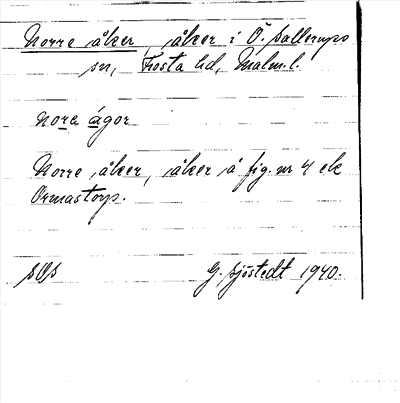 Norre åker, åker i Ö. Sallerups
sn, Frosta hd, Malm. l.
nora ágor
Norre åker, åker å fig. nr 4 ek
Ormastorp.
G. Sjöstedt 1940.